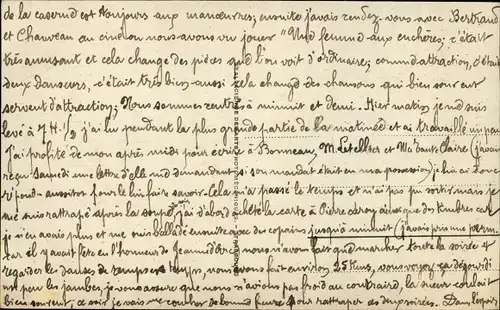 de la caserne est toujours aux manœuvres; ensuite j'avais rendez-vous avec Bertrand
et Chauveau au cinéma nous avons vu jouer "Une femme aux enchères; c'était
très amusant et cela change des pièces que l'on voit d'ordinaire; comme attraction, c'était
deux danseurs, c'était très bien aussi cela change des chansons qui bien souvent
servent d'attraction; Nous sommes rentrés à minuit et demi. Hier matin je me suis
levé à 7 H. 1/2 j'ai lu pendant la plus grande partie de la matinée et ai travaillé un peu
J'ai profité de mon après midi pour écrire à Bonneau, M. Letellier et Ma tante Claire (j'avais
reçu Samedi une lettre d'elle me demandant si son mandat était en ma possession) je lui ai donc
répondu aussitôt pour le lui faire savoir. Cela m'a passé le temps et n'ai pas pu sortir mais je
me suis rattrapé après la soupe, j'ai d'abord acheté la carte à Pierre Leroy ainsi que des timbres car
je n'en avais plus et me suis balladé ensuite avec des copains jusqu'à minuit (j'avais pris une perm
car il y avait fête en l'honneur de Jeanne d'Arc nous n'avons fait que marcher toute la soirée et
regarder les danses de temps en temps, nous avons fait environ 25 Kms, vous voyez ça dégourdi
un peu les jambes, je vous assure que nous n'avions pas froid au contraire, la sueur coulait
bien souvent, ce soir je vais me coucher de bonne heure pour rattraper ces deux soirées. Dans l'espoir